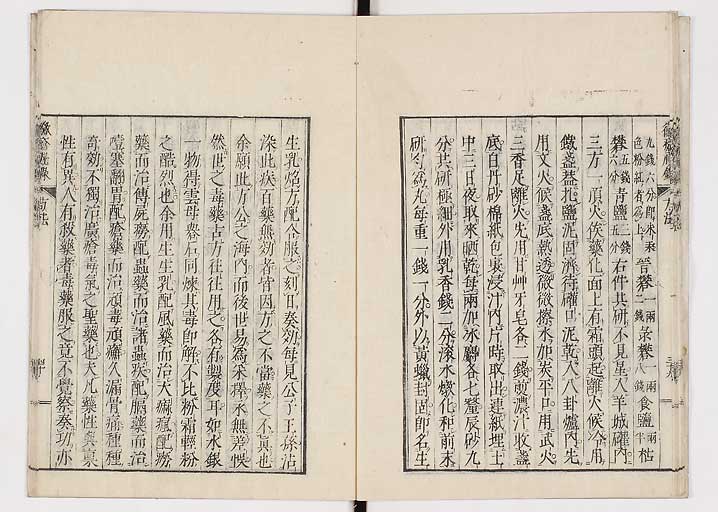 九錢六分即水汞
色粉紅者為上晉礬一兩二錢彔礬一兩八錢食鹽一兩半枯
礬五錢六分青鹽三錢五分右件共研不見星入羊城礶內
三方一頂火俟藥化面上有霜頭起離火候冷用
鐵盞盐孔鹽泥固濟待礶口泥乾入八卦爐內先
用文火候盞底熱透微微擦水加炭平口用武火
三香足離火先用甘艸牙皂各二錢煎濃汁收盞
底自丹砂棉紙包裹浸汁內片時取出連紙埋土
中三日夜取來晒乾每兩加冰腦各七釐辰砂九
分共研極細外用乳香錢二分滾水燉化和前末
研勻為丸每重一錢一分外以黃蠟封固即名生
生乳焰方配合服之刻日奏効每見公子王孫沾
染此疾百藥無効者皆因方之不當藥之不真也
余願此方公之海內而後世易為釆擇永無差悞
然世之毒藥古方往往用之各有製度耳如水銀
一物得雲母礬石同煉其毒即解不比粉霜輕粉
之酷烈也余用生生乳配風藥而治大痲瘋配癆
藥而治傳屍癆配蟲藥而治諸蟲疾配膈藥而治
噎塞翻胃配瘡藥而治頑毒頑癬久漏骨疽種種
奇効不獨治廣瘡毒氣之聖藥也夫凡藥性與稟
性有異人有投藥者毒藥服之竟不覺察奏功亦